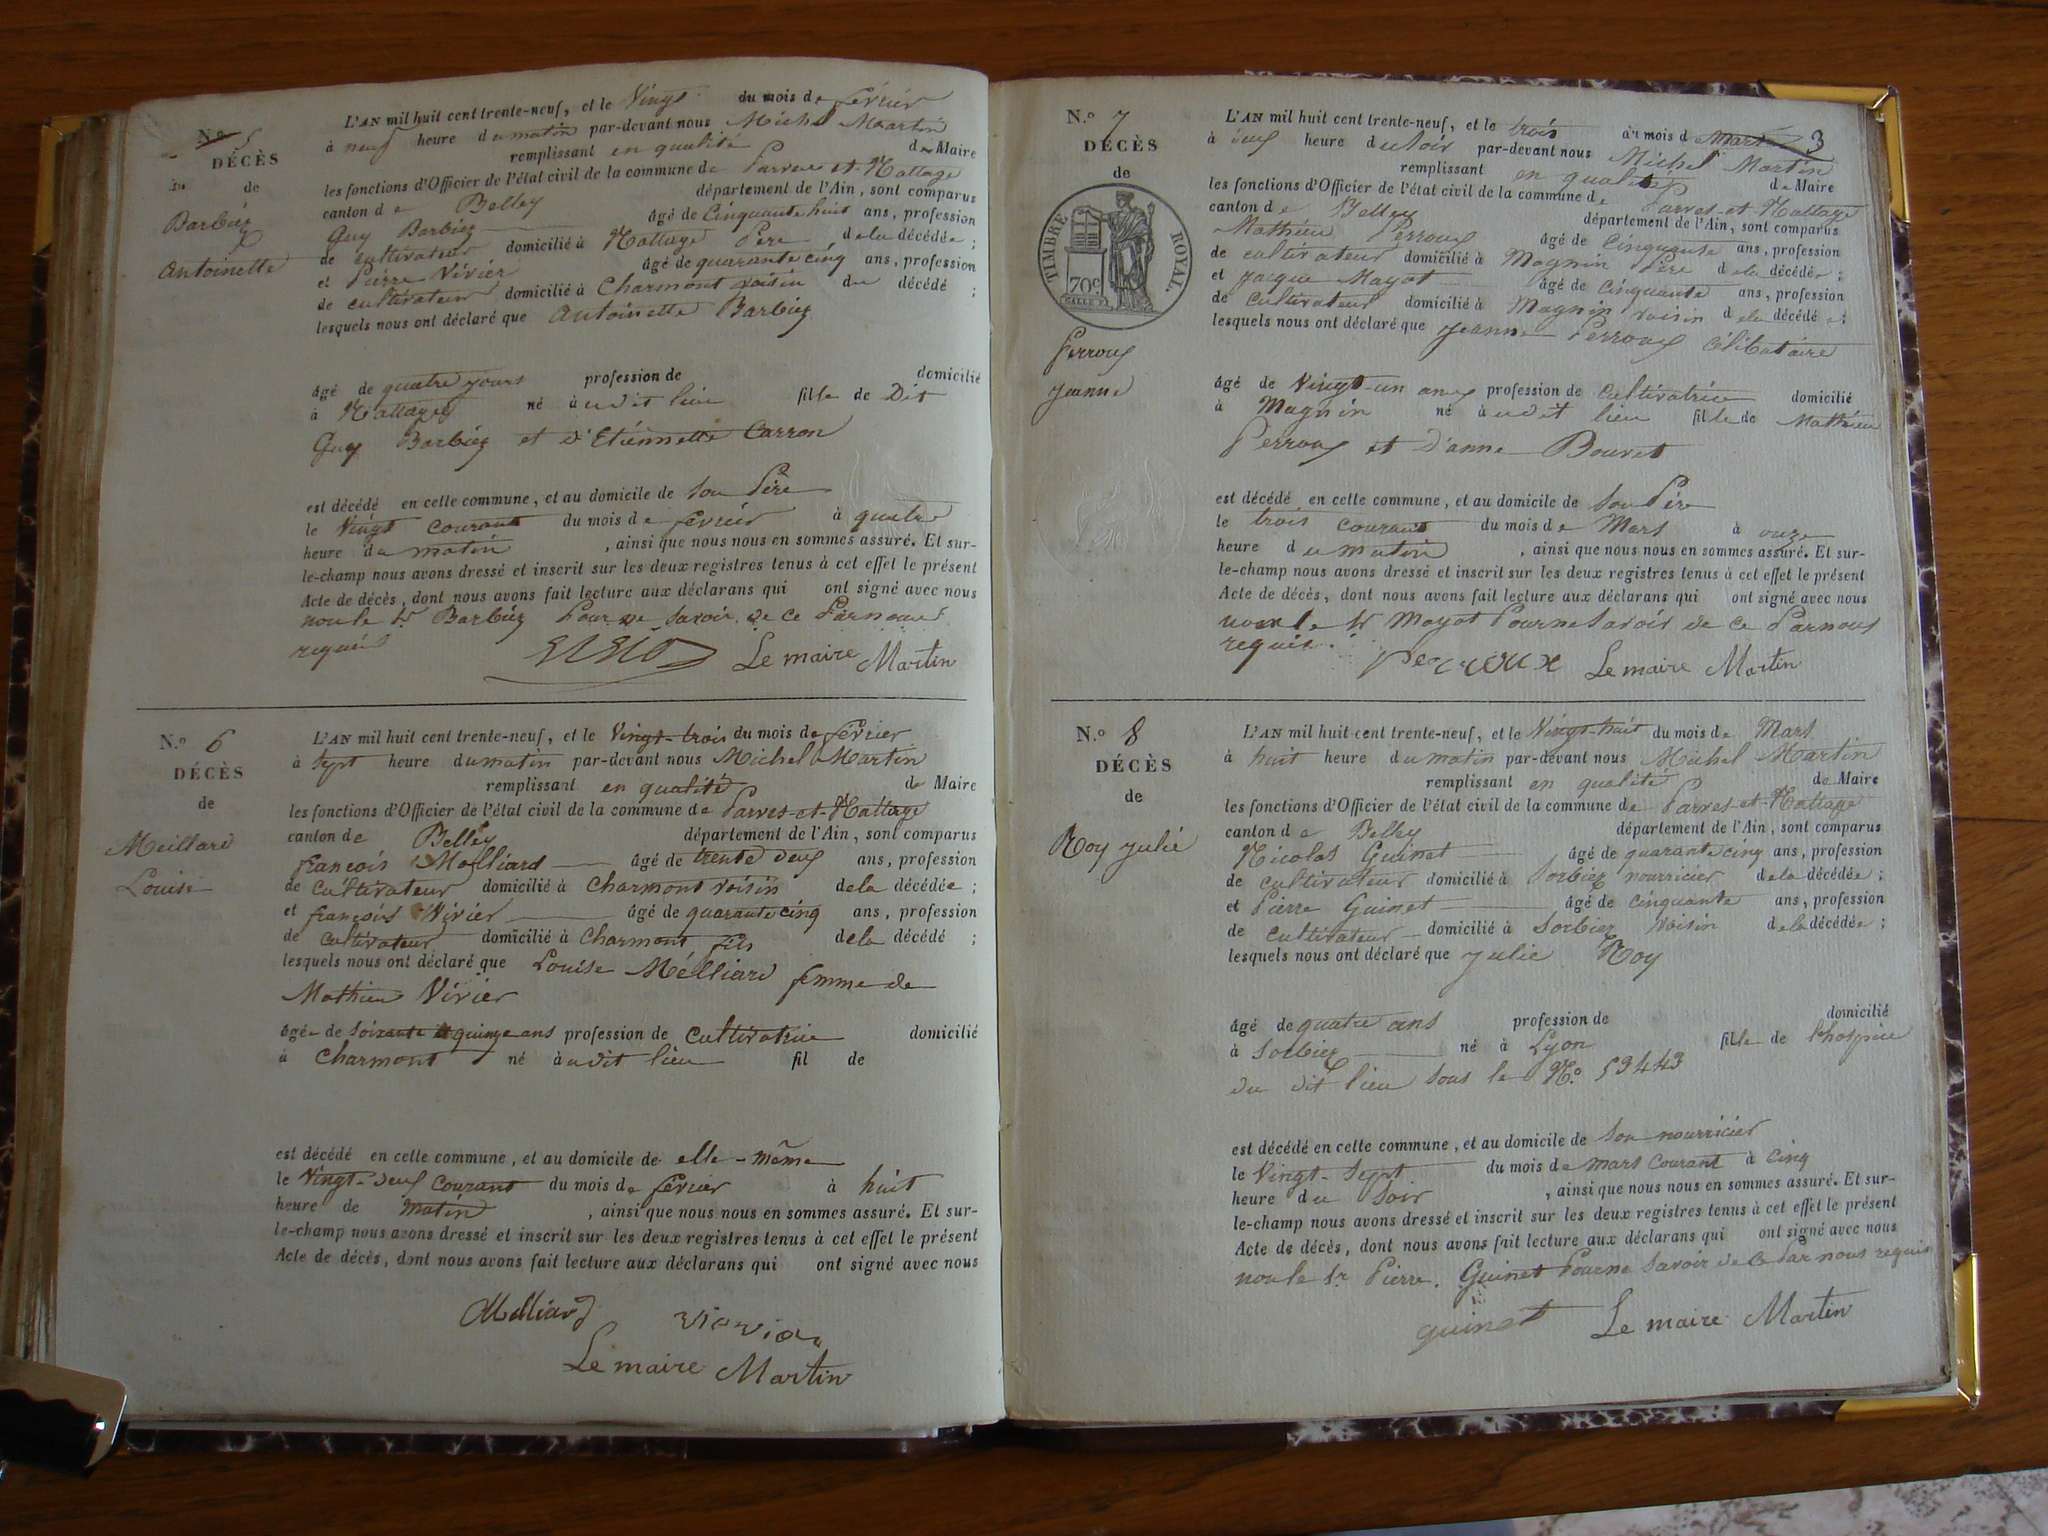 N.o 5
DÉCÈS
de
Barbiez
Antoinette
L'AN mil huit cent trente-neuf, et le Vingt du mois de février
à neuf heure du matin par-devant nous Michel Martin
remplissant en qualité de Maire
les fonctions d'Officier de l'état civil de la commune de Parves-et-Nattage
canton de Belley département de l'Ain, sont comparus
Guy Barbiez âgé de Cinquante huit ans, profession
de cultivateur domicilié à Nattage Père de la décédée;
et Pierre Vivier âgé de quarante cinq ans, profession
de cultivateur domicilié à Charmont voisin du décédé;
lesquels nous ont déclaré que Antoinette Barbiez
âgé de quatre jours profession de domicilié
à Nattages né audit lieu fille de Dit
Guy Barbiez et d'Etiennette Carron
est décédé en celle commune, et au domicile de son Père
le Vingt courant du mois de fevrier à quatre
heure du matin, ainsi que nous nous en sommes assuré. Et sur-
le-champ nous avons dressé et inscrit sur les deux registres tenus à cet effet le présent
Acte de décès, dont nous avons fait lecture aux déclarans qui ont signé avec nous
non le Sr Barbiez Pour ne savoir de ce Par nous
requis
Le maire Martin
N.o 6
DÉCÈS
de
Meillard
Louise
L'AN mil huit cent trente-neuf, et le Vingt-trois du mois de fevrier
à sept heure du matin par-devant nous Michel Martin
remplissant en qualité de Maire
les fonctions d'Officier de l'état civil de la commune de Parves-et-Nattage
canton de Belley département de l'Ain, sont comparus
francois Melliard âgé de trente deux ans, profession
de cultivateur domicilié à Charmont voisin de la décédée;
et françois Vivier âgé de quarante cinq ans, profession
de cultivateur domicilié à Charmont fils de la décédé;
lesquels nous ont déclaré que Louise Mélliard femme de
Mathieu Vivier
âgée de soixante et quinze ans profession de cultivatrice domicilié
à Charmont né audit lieu fil de
est décédé en celle commune, et au domicile de elle-même
le Vingt-deux courant du mois de fevrier à huit
heure de matin, ainsi que nous nous en sommes assuré. Et sur-
le-champ nous avons dressé et inscrit sur les deux registres tenus à cet effet le présent
Acte de décès, dont nous avons fait lecture aux déclarans qui ont signé avec nous
Melliard
Le maire Martin
3
N.o 7
DÉCÈS
de
TIMBRE ROYAL.
70c
Perroux
Jeanne
L'AN mil huit cent trente-neuf, et le trois du mois de Mars
à heure du soir par-devant nous Michel Martin
remplissant en qualité de Maire
les fonctions d'Officier de l'état civil de la commune de Parves-et-Nattage
canton de Belley département de l'Ain, sont comparus
Mathieu Perroux âgé de Cinquante ans, profession
de cultivateur domicilié à Magnin Père de la décédée;
et Jacque Mayot âgé de cinquante ans, profession
de cultivateur domicilié à Magnin voisin de la décédée;
lesquels nous ont déclaré que Jeanne Perroux célibataire
âgé de Vingt-un ans profession de cultivatrice domicilié
à Magnin né audit lieu fille de Mathieu
Perroux et D'anne Bouvet
est décédé en celle commune, et au domicile de son Père
le trois courant du mois de Mars à onze
heure du matin, ainsi que nous nous en sommes assuré. Et sur-
le-champ nous avons dressé et inscrit sur les deux registres tenus à cet effet le présent
Acte de décès, dont nous avons fait lecture aux déclarans qui ont signé avec nous
non le Sr Mayot Pour ne savoir de ce Par nous
requis.
Perroux Le maire Martin
N.o 8
DÉCÈS
de
Roy Julie
L'AN mil huit cent trente-neuf, et le Vingt-huit du mois de Mars
à huit heure du matin par-devant nous Michel Martin
remplissant en qualité de Maire
les fonctions d'Officier de l'état civil de la commune de Parves-et-Nattage
canton de Belley département de l'Ain, sont comparus
Nicolas Guinet âgé de quarante cinq ans, profession
de cultivateur domicilié à Sorbiez nourricier de la décédée;
et Pierre Guinet âgé de cinquante ans, profession
de cultivateur domicilié à Sorbiez Voisin de la décédée;
lesquels nous ont déclaré que Julie Roy
âgé de quatre ans profession de domicilié
à Sorbiez né à Lyon fille de l'hospice
du dit lieu sous le N.o 53443
est décédé en celle commune, et au domicile de son nourricier
le Vingt-sept du mois de mars courant à cinq
heure du soir, ainsi que nous nous en sommes assuré. Et sur-
le-champ nous avons dressé et inscrit sur les deux registres tenus à cet effet le présent
Acte de décès, dont nous avons fait lecture aux déclarans qui ont signé avec nous
non le Sr Pierre. Guinet Pour ne savoir de ce Par nous requis
guinet Le maire Martin